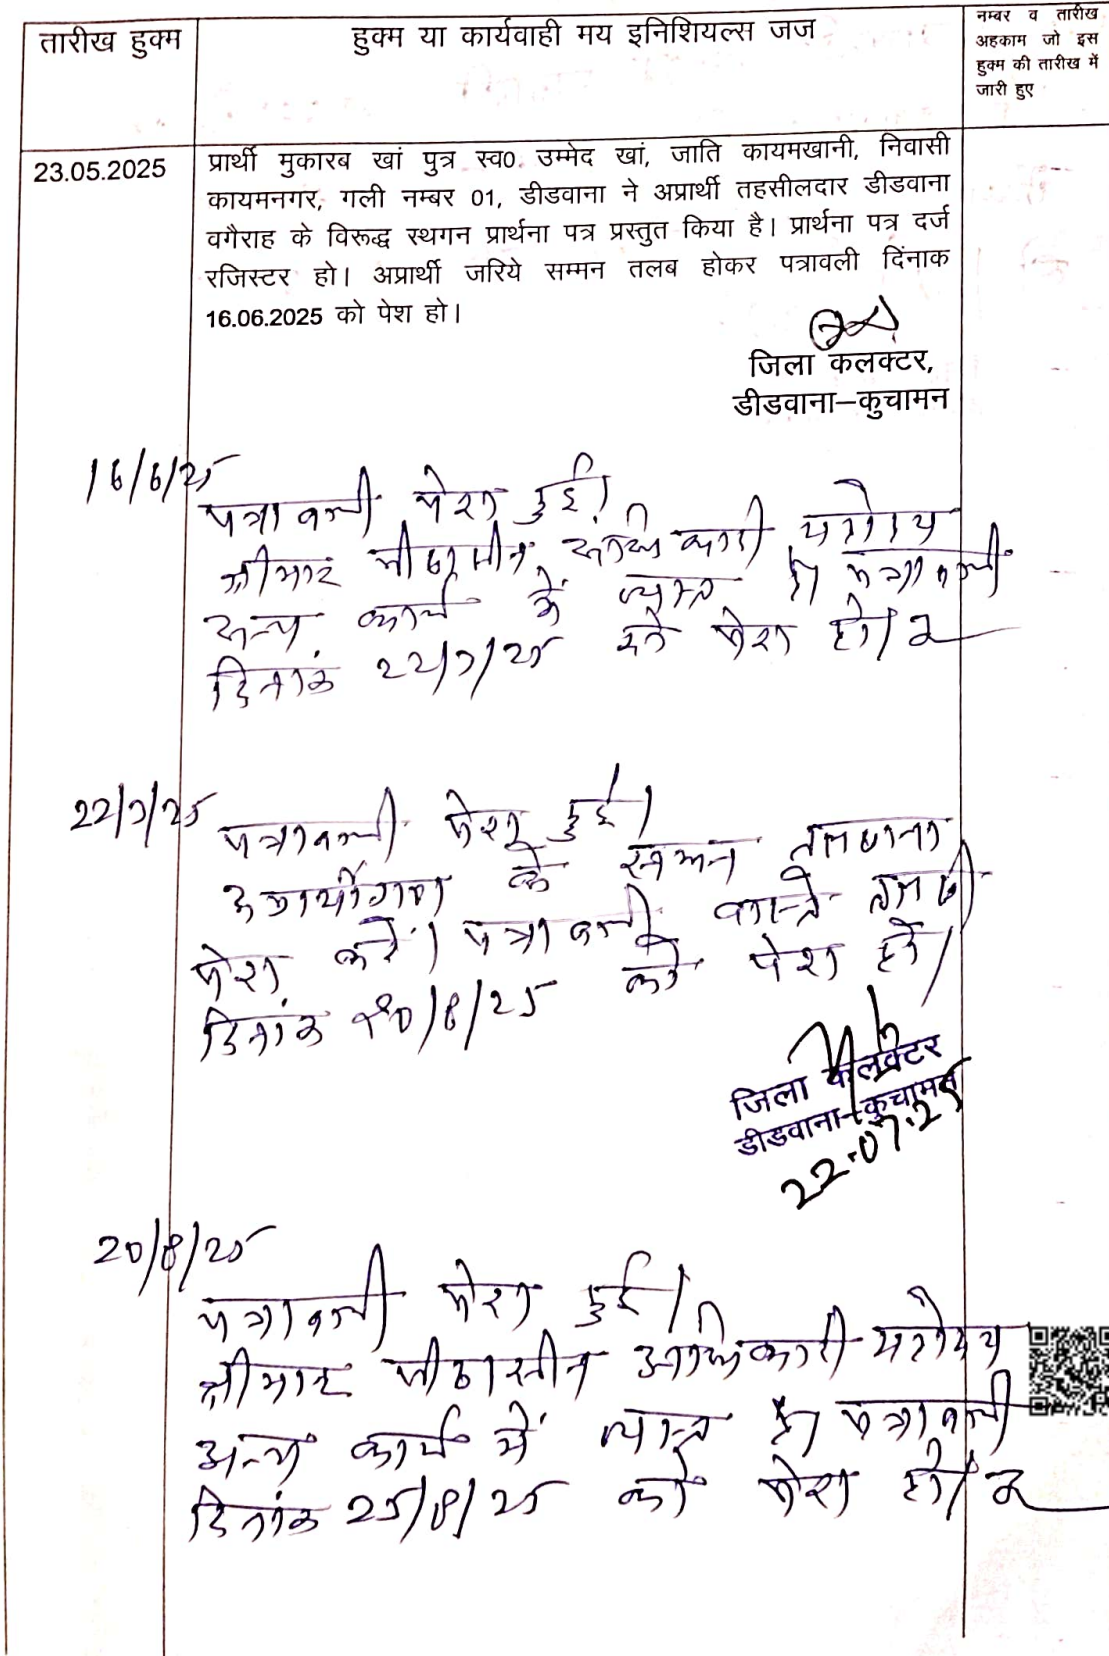 तारीख हुक्म
हुक्म या कार्यवाही मय इनिशियल्स जज
नम्बर व तारीख
अहकाम जो इस
हुक्म की तारीख में
जारी हुए
23.05.2025
प्रार्थी मुकारब खां पुत्र स्व0. उम्मेद खां, जाति कायमखानी, निवासी
कायमनगर, गली नम्बर 01, डीडवाना ने अप्रार्थी तहसीलदार डीडवाना
वगैराह के विरूद्ध स्थगन प्रार्थना पत्र प्रस्तुत किया है। प्रार्थना पत्र दर्ज
रजिस्टर हो। अप्रार्थी जरिये सम्मन तलब होकर पत्रावली दिंनाक
16.06.2025 को पेश हो।
जिला कलक्टर,
डीडवाना–कुचामन
16/6/25
पत्रावली पेश हुई।
श्रीमान पीठासीन अधिकारी महोदय
अन्य कार्य में व्यस्त है। पत्रावली
दिनांक 22/7/25 को पेश हो।
22/7/25
पत्रावली पेश हुई।
अप्रार्थीगण के सम्मन तलबाना
पेश करें। पत्रावली वास्ते तलबी
दिनांक 20/8/25 को पेश हो।
जिला कलक्टर
डीडवाना-कुचामन
22.07.25
20/8/25
पत्रावली पेश हुई।
श्रीमान पीठासीन अधिकारी महोदय
अन्य कार्य में व्यस्त है। पत्रावली
दिनांक 25/8/25 को पेश हो।